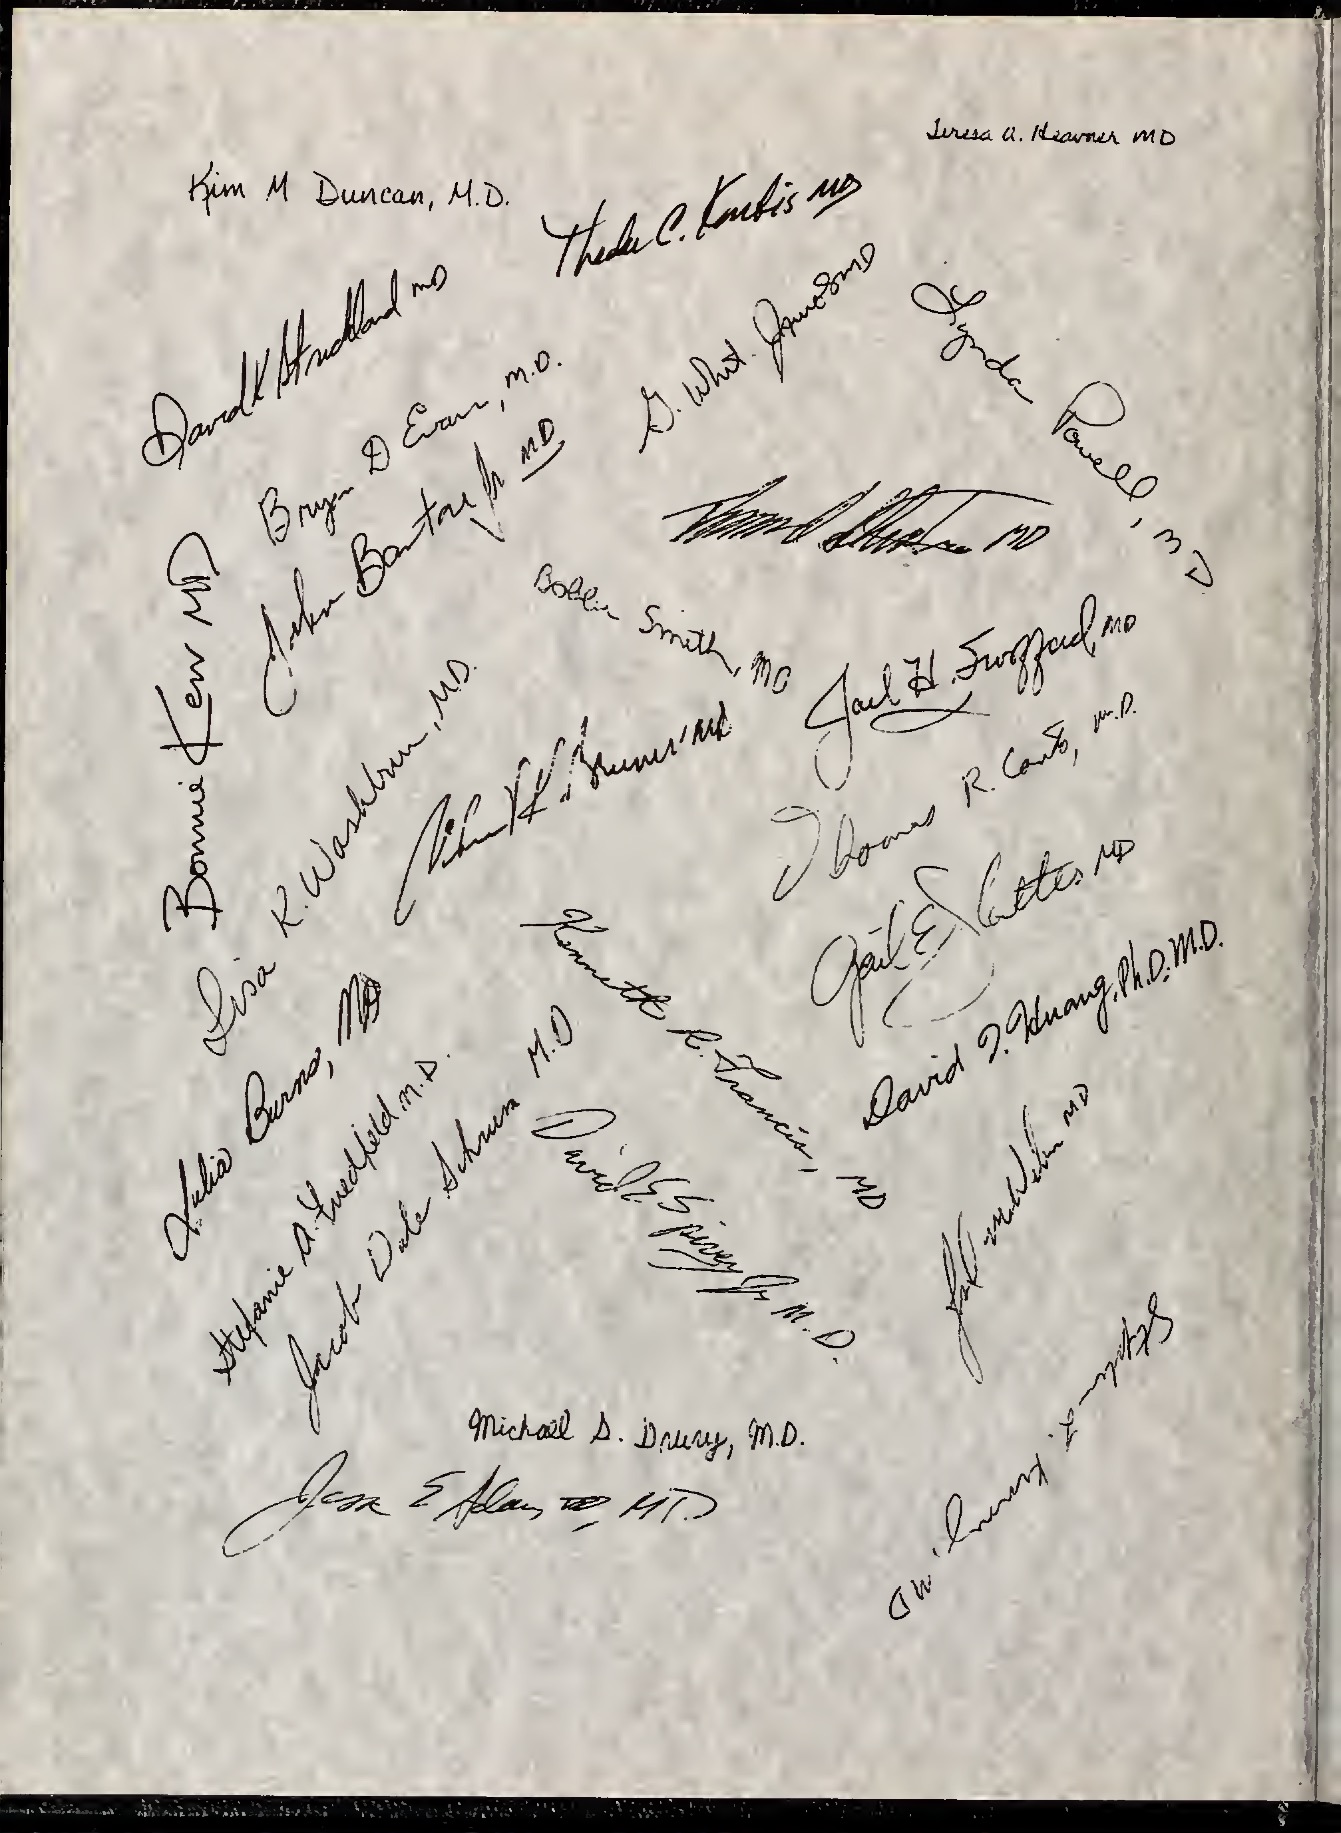 Teresa A. Heavner MD
Kim M Duncan, M.D.
Theda C. Kontis MD
David K Strickland MD
G. Whit. Jones MD
Lynda Powell, MD
Bryan D Evans, M.D.
John Bantos Jr MD
MD
Bonnie Kerr MD
Bobbie Smith, MD
Jack H. Swofford, MD
Lisa K. Washburn, M.D.
MD
Thomas R. Cants, M.D.
Gail E MD
Kenneth R. Francis, MD
David T. Huang, Ph.D. M.D.
Julia Burns, MD
Stefanie A. Friedfeld M.D.
Jacob Dale Schrum M.D
David E Spivey Jr M.D.
MD
MD
Michael S. Drury, M.D.
E Adams III, M.D.